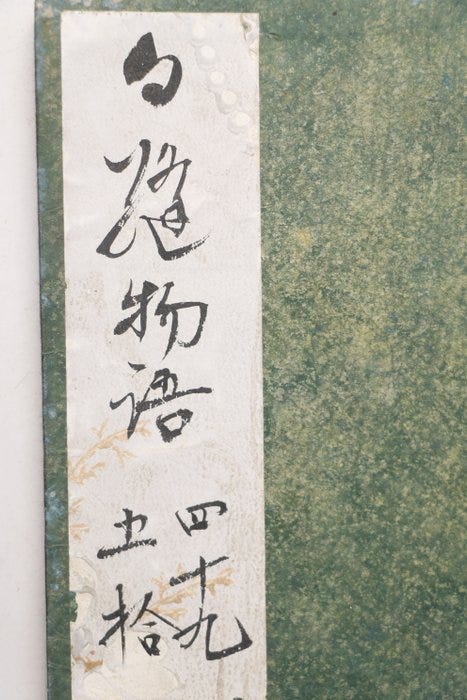 白縫物語
四十九
五拾